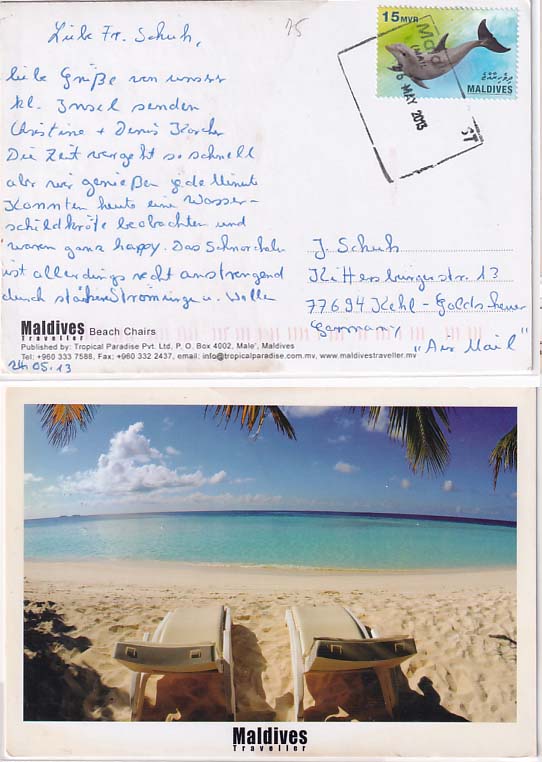 Liebe Fr. Schuh,
15
liebe Grüße von unserer
kl. Insel senden
Christine + Denis
Die Zeit vergeht so schnell
aber wir genießen jede Minute
Konnten heute eine Wasser-
schildkröte beobachten und
waren ganz happy. Das Schnorcheln
ist allerdings recht anstrengend
durch starken Strömungen u. Wellen
15 MVR
MALDIVES
26 MAY 2013
J. Schuh
13
77694 Kehl - Goldscheuer
Germany
"Air Mail"
Maldives Beach Chairs
Traveller
Published by: Tropical Paradise Pvt. Ltd, P. O. Box 4002, Male', Maldives
Tel: +960 333 7588, Fax; +960 332 2437, email: info@tropicalparadise.com.mv, www.maldivestraveller.mv
24.05.13
Maldives
Traveller